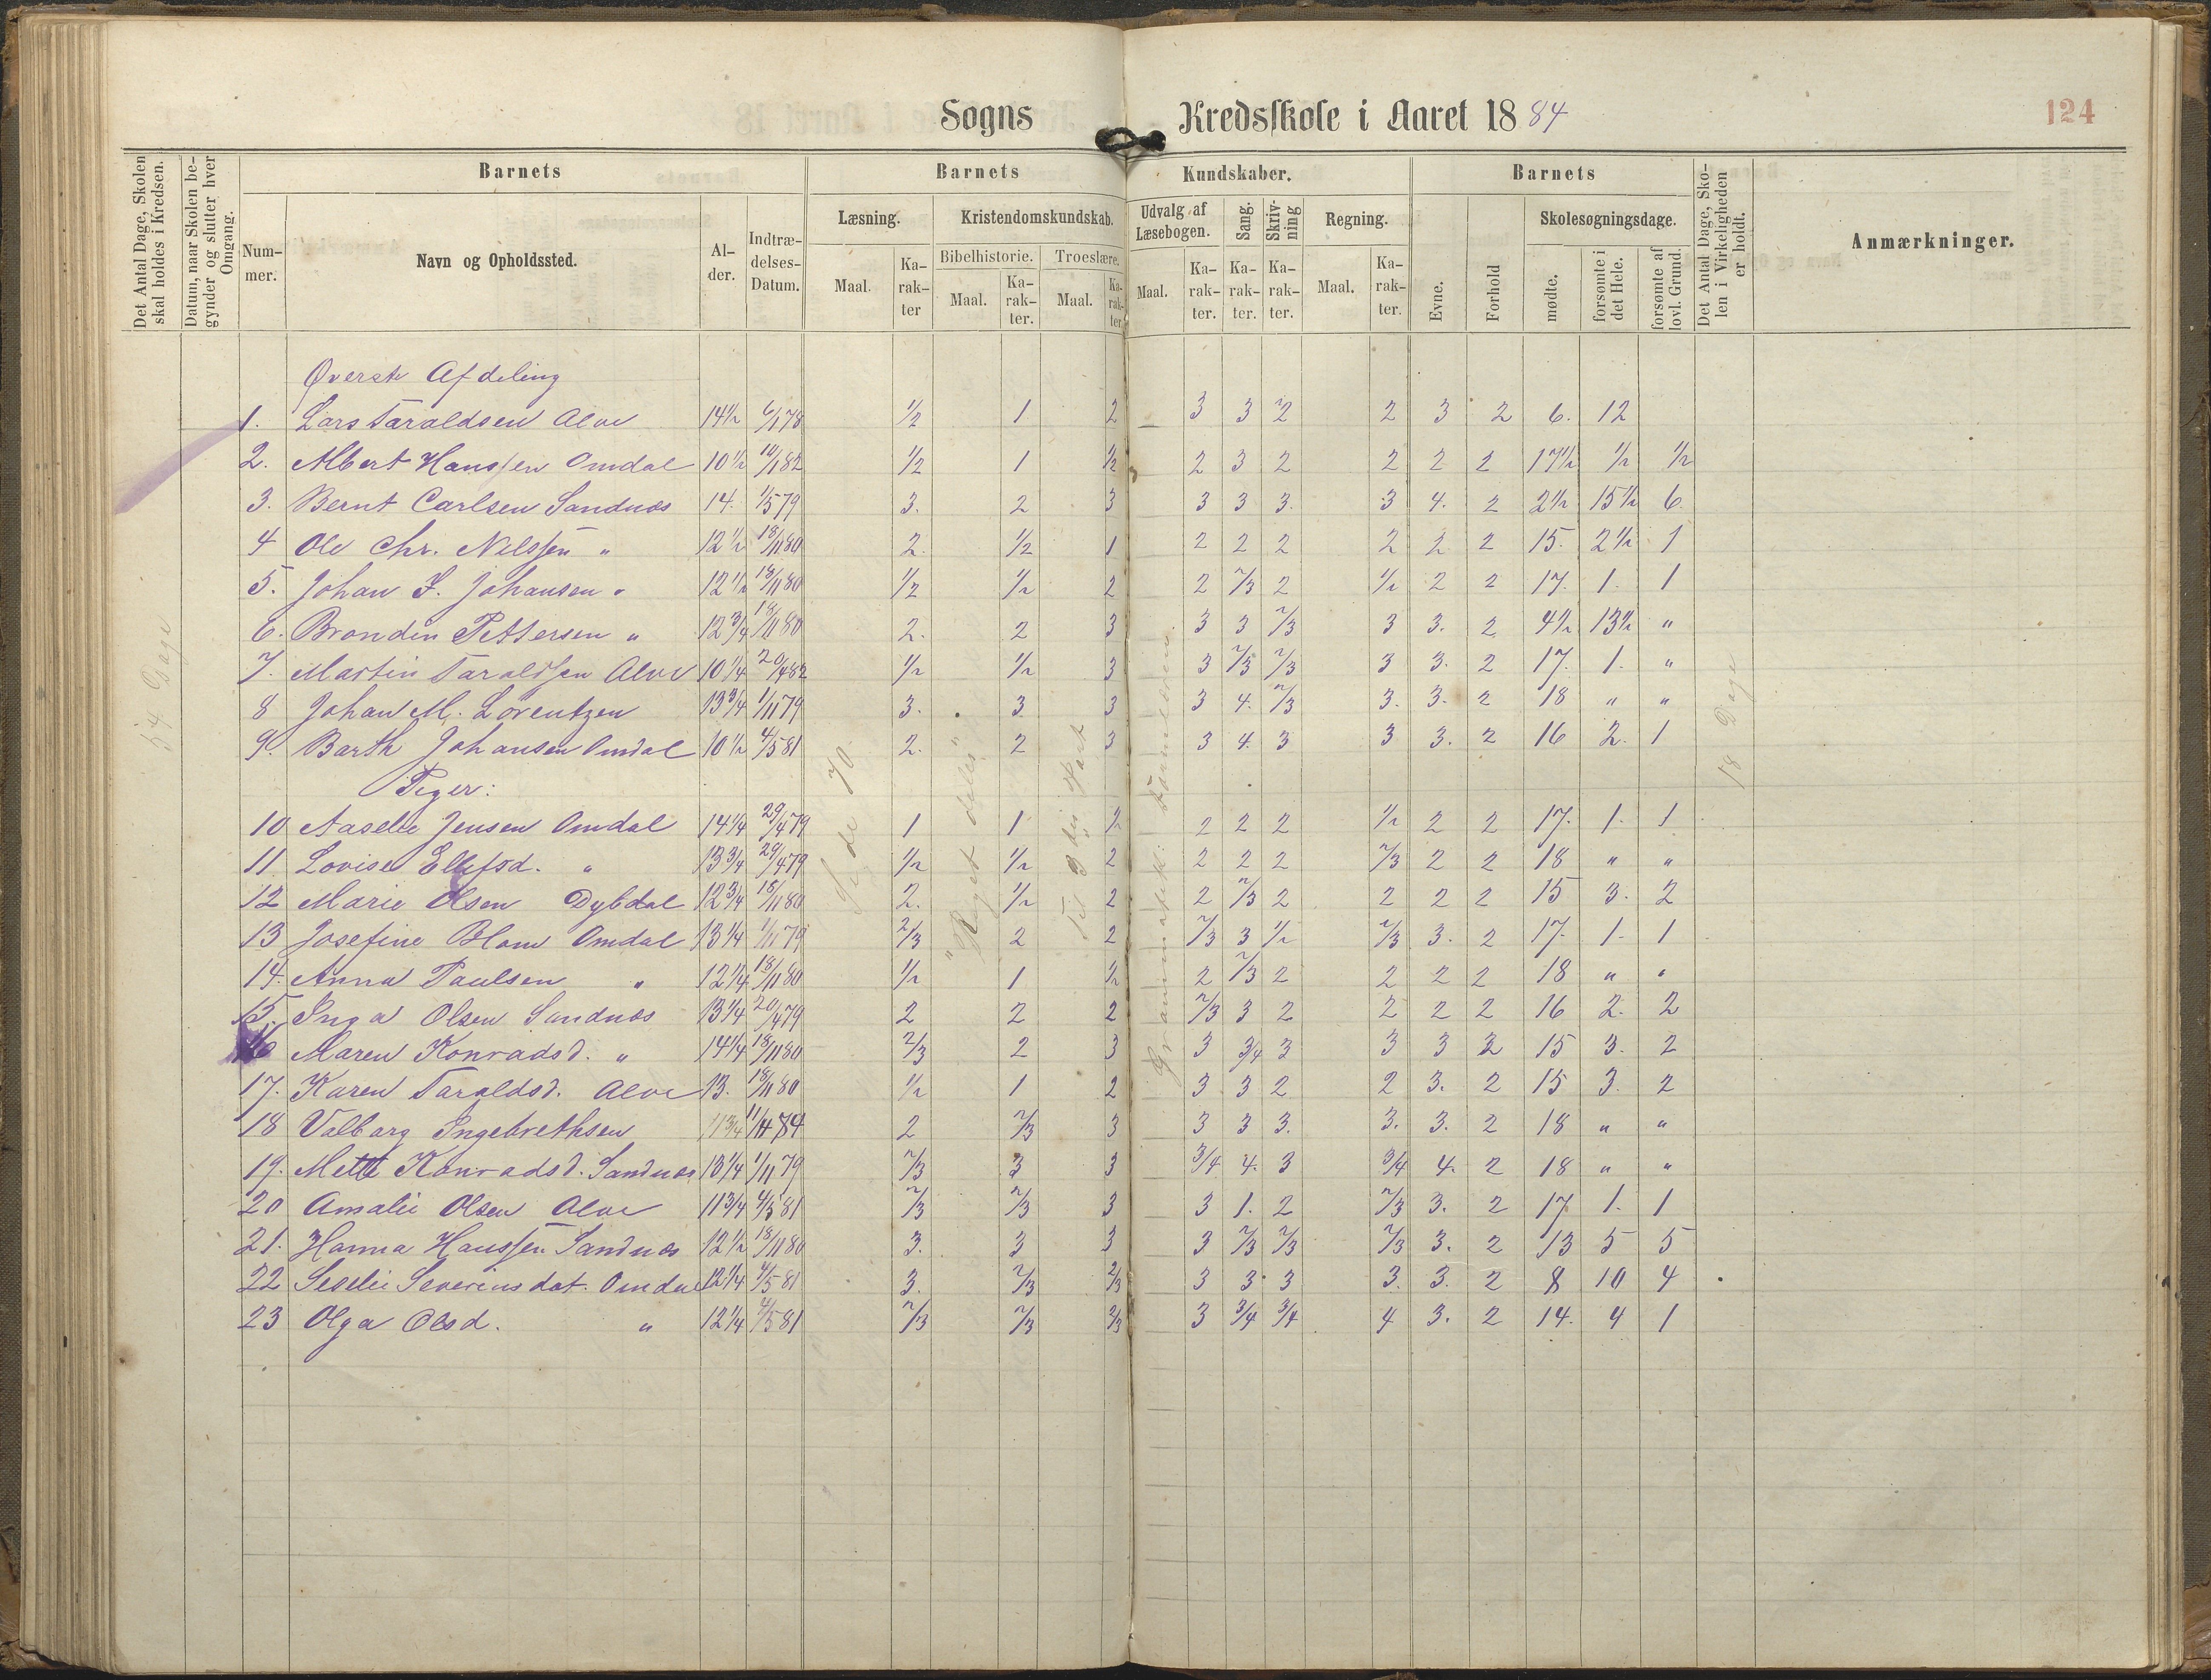 Sogns Kredsskole i Aaret 1884
124
Det Antal Dage, Skolen skal holdes i Kredsen.
Datum, naar Skolen begynder og slutter hver Omgang.
Barnets
Nummer.
Navn og Opholdssted.
Alder.
Indtrædelses-Datum.
Barnets Kundskaber.
Læsning.
Maal.
Karakter
Kristendomskundskab.
Bibelhistorie.
Maal.
Karakter.
Troeslære.
Maal.
Karakter.
Udvalg af Læsebogen.
Maal.
Karakter.
Sang.
Karakter.
Skrivning
Karakter.
Regning.
Maal.
Karakter.
Barnets
Evne.
Forhold
Skolesøgningsdage.
mødte.
forsømte i det Hele.
forsømte af lovl. Grund.
Det Antal Dage, Skolen i Virkeligheden er holdt.
Anmærkninger.
Øverste Afdeling
1. Lars Taraldsen Alve 14½ 6/1 78 ½ 1 2 3 3 2 2 3 2 6. 12
2. Albert Hanssen Omdal 10½ 1/2 1 ½ 2 3 2 2 2 2 17½ ½ ½
3. Bernt Carlsen Sandnæs 14. 1/5 79 3. 2 3 3 3 3. 3 4. 2 2½ 15½ 6.
4 Ole Chr. Nilssen " 12½ 18/11 80 2. ½ 1 2 2 2 2 2 2 15. 2½ 1
5. Johan S. Johansen " 12½ 18/11 80 ½ ½ 2 2 2/3 2 ½ 2 2 17. 1. 1
6. Brondin Pettersen " 12¾ 18/11 80 2. 2 3 3 3 2/3 3 3. 2 4½ 13½ "
7. Martin Taraldsen Alve 10¼ 20/4 82 ½ ½ 3 3 2/3 2/3 3 3. 2 17. 1. "
8 Johan M. Lorentzen 13¾ 1/11 79 3. 3 3 3 4. 2/3 3. 3. 2 18 " "
9. Barth Johansen Omdal 10½ 4/5 81 2. 2 3 3 4. 3 3 3. 2 16 2. 1
Piger:
10 Aaselie Jensen Omdal 14¼ 29/4 79 1 1 ½ 2 2 2 ½ 2 2 17. 1. 1
11. Lovise Ellefsd. " 13¾ 29/4 79 ½ ½ 2 2 2 2 2/3 2 2 18 " "
12 Marie Olsen Dybdal 12¾ 18/11 80 2. ½ 2 2 2/3 2 2 2 2 15 3. 2
13 Josefine Blom Omdal 13¼ 1/11 79 2/3 2 2 2/3 3 ½ 2/3 3. 2 17. 1. 1
14. Anna Paulsen " 12¼ 18/11 80 ½ 1 ½ 2 2/3 2 2 2 2 18 " "
15. Inga Olsen Sandnæs 13¼ 20/4 79 2 2 2 2/3 3 2 2 2 2 16 2. 2
16 Maren Konradsd. " 14¼ 18/11 80 2/3 2 3 3 3/4 3 3 3 2 15 3. 2
17. Karen Taraldsd. Alve 13. 18/11 80 ½ 1 2 3 3 2 2 3. 2 15 3. 2
18 Valborg Ingebrethsen 11¾ 2 2/3 3 3 3 3. 3. 3. 2 18 " "
19. Mette Konradsd. Sandnæs 13¼ 1/11 79 2/3 3 3 3/4 4. 3 3/4 4. 2 18 " "
20 Amalie Olsen Alve 11¾ 4/5 81 2/3 2/3 3 3 1. 2 2/3 3. 2 17 1. 1
21. Hanna Hanssen Sandnæs 12½ 18/11 80 3. 3 3 3 2/3 2/3 2/3 3. 2 13 5 5
22 Seselie Severinsdat. Omdal 12¼ 4/5 81 3. 2/3 2/3 3 3 3 3. 3. 2 8 10 4
23 Olga Olsd. " 12¼ 4/5 81 2/3 2/3 2/3 3 3/4 3/4 4 3. 2 14. 4 1
54 Dage
Side 70
"Riget deles"
Til 3die Part
Grammatik:
18 Dage